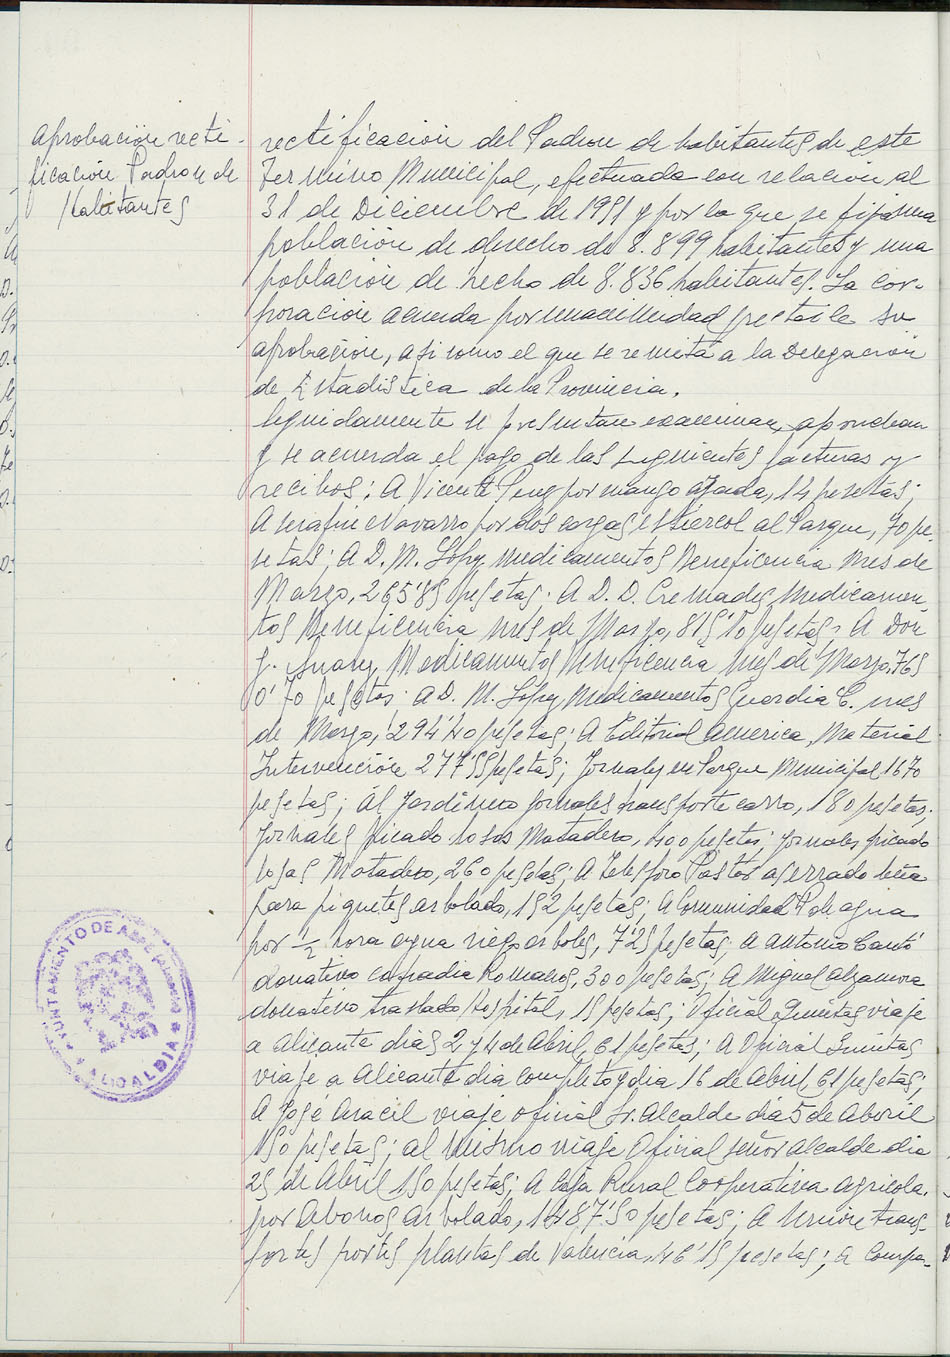 Aprobación recti-
ficación Padron de
Habitantes
rectificación del Padron de habitantes de este
Termino Municipal, efectuada con relación al
31 de Diciembre de 1951 y por la que se fija una
población de derecho de 8.899 habitantes y una
población de hecho de 8.836 habitantes. La cor-
poración acuerda por unanimidad prestarle su
aprobación, asi como el que se remita a la Delegación
de Estadistica de la Provincia.
Seguidamente se presentan examinan, aprueban
y se acuerda el pago de las siguientes facturas y
recibos: A Vicente Puig por mango azada, 14 pesetas;
A Serafin Navarro por dos cargas estiercol al Parque, 70 pe-
setas; A D. M. López medicamentos Beneficencia mes de
Marzo, 265'85 pesetas; A D. D. Cremades, Medicamen-
tos Beneficencia mes de Marzo, 815'10 pesetas; A Don
J. Medicamentos Beneficencia mes de Marzo, 765
0'70 pesetas; a D. M. López Medicamentos Guardia C. mes
de Marzo, 294'40 pesetas; A Editorial America, Material
Intervención 277'55 pesetas; Jornales en Parque Municipal 1670
pesetas; Al Jardinero jornales transporte carro, 180 pesetas.
Jornales picado losas Matadero, 400 pesetas; jornales picado
losas Matadero, 260 pesetas; A Telesforo Pastor aserrado leña
para piquetes arbolado, 152 pesetas; A Comunidad de agua
por ½ hora agua riego arboles, 7'25 pesetas; a Antonio Cantó
donativo cofradia Romanos, 300 pesetas; A Miguel Alzamora
donativo traslado Hospital, 15 pesetas; Oficial Quintas viaje
a Alicante dias 2 y 4 de Abril, 61 pesetas; A Oficial Quintas
viaje a Alicante dia completo y dia 16 de Abril 61 pesetas;
A José Aracil viaje oficial Sr. Alcalde dia 5 de Abril
150 pesetas; al mismo viaje Oficial señor Alcalde dia
25 de Abril 150 pesetas; A Caja Rural Cooperativa Agricola.
por Abonos arbolado, 1487'50 pesetas; A Unión trans-
portes portes plantas de Valencia, 46'15 pesetas; a Compa-
AYUNTAMIENTO DE ASPE (Alicante)
ALCALDIA